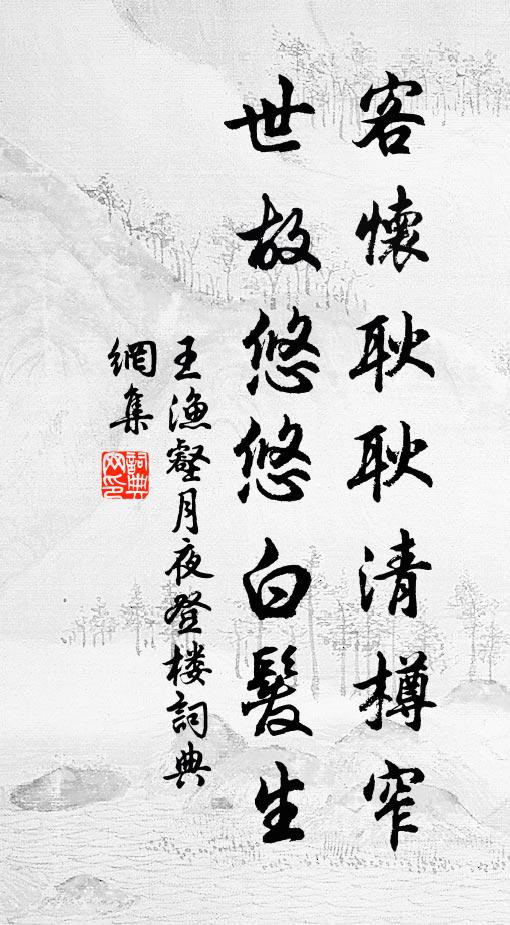 客懷耿耿清樽窄
世故悠悠白髮生
王漁壑月夜登楼詞典
網集
詞典網印